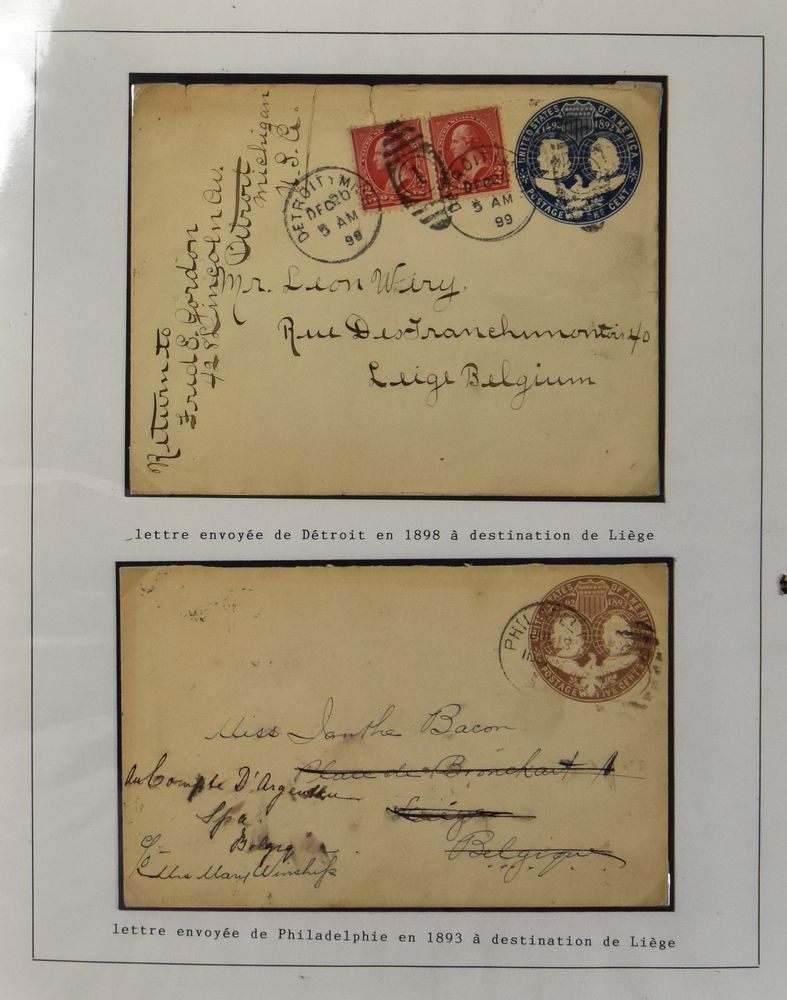 Return to
Fred E. Gordon
428 Lincoln Av.
Detroit
Michigan
U.S.A.
DETROIT, MICH
DEC 20
5 AM
99
DETROIT
DEC 20
5 AM
99
UNITED STATES OF AMERICA
1492 1892
POSTAGE ONE CENT
Mr. Leon Wéry.
Rue Des Franchimontois 40
Leige Belgium
lettre envoyée de Détroit en 1898 à destination de Liège
PHIL
UNITED STATES OF AMERICA
1892
POSTAGE FIVE CENTS
Miss Ianthe Bacon
Place de Bronckart
Au Compte D'Argenteau
Liége
Spa.
Belgique
c/o Mrs Mary Winship
lettre envoyée de Philadelphie en 1893 à destination de Liège